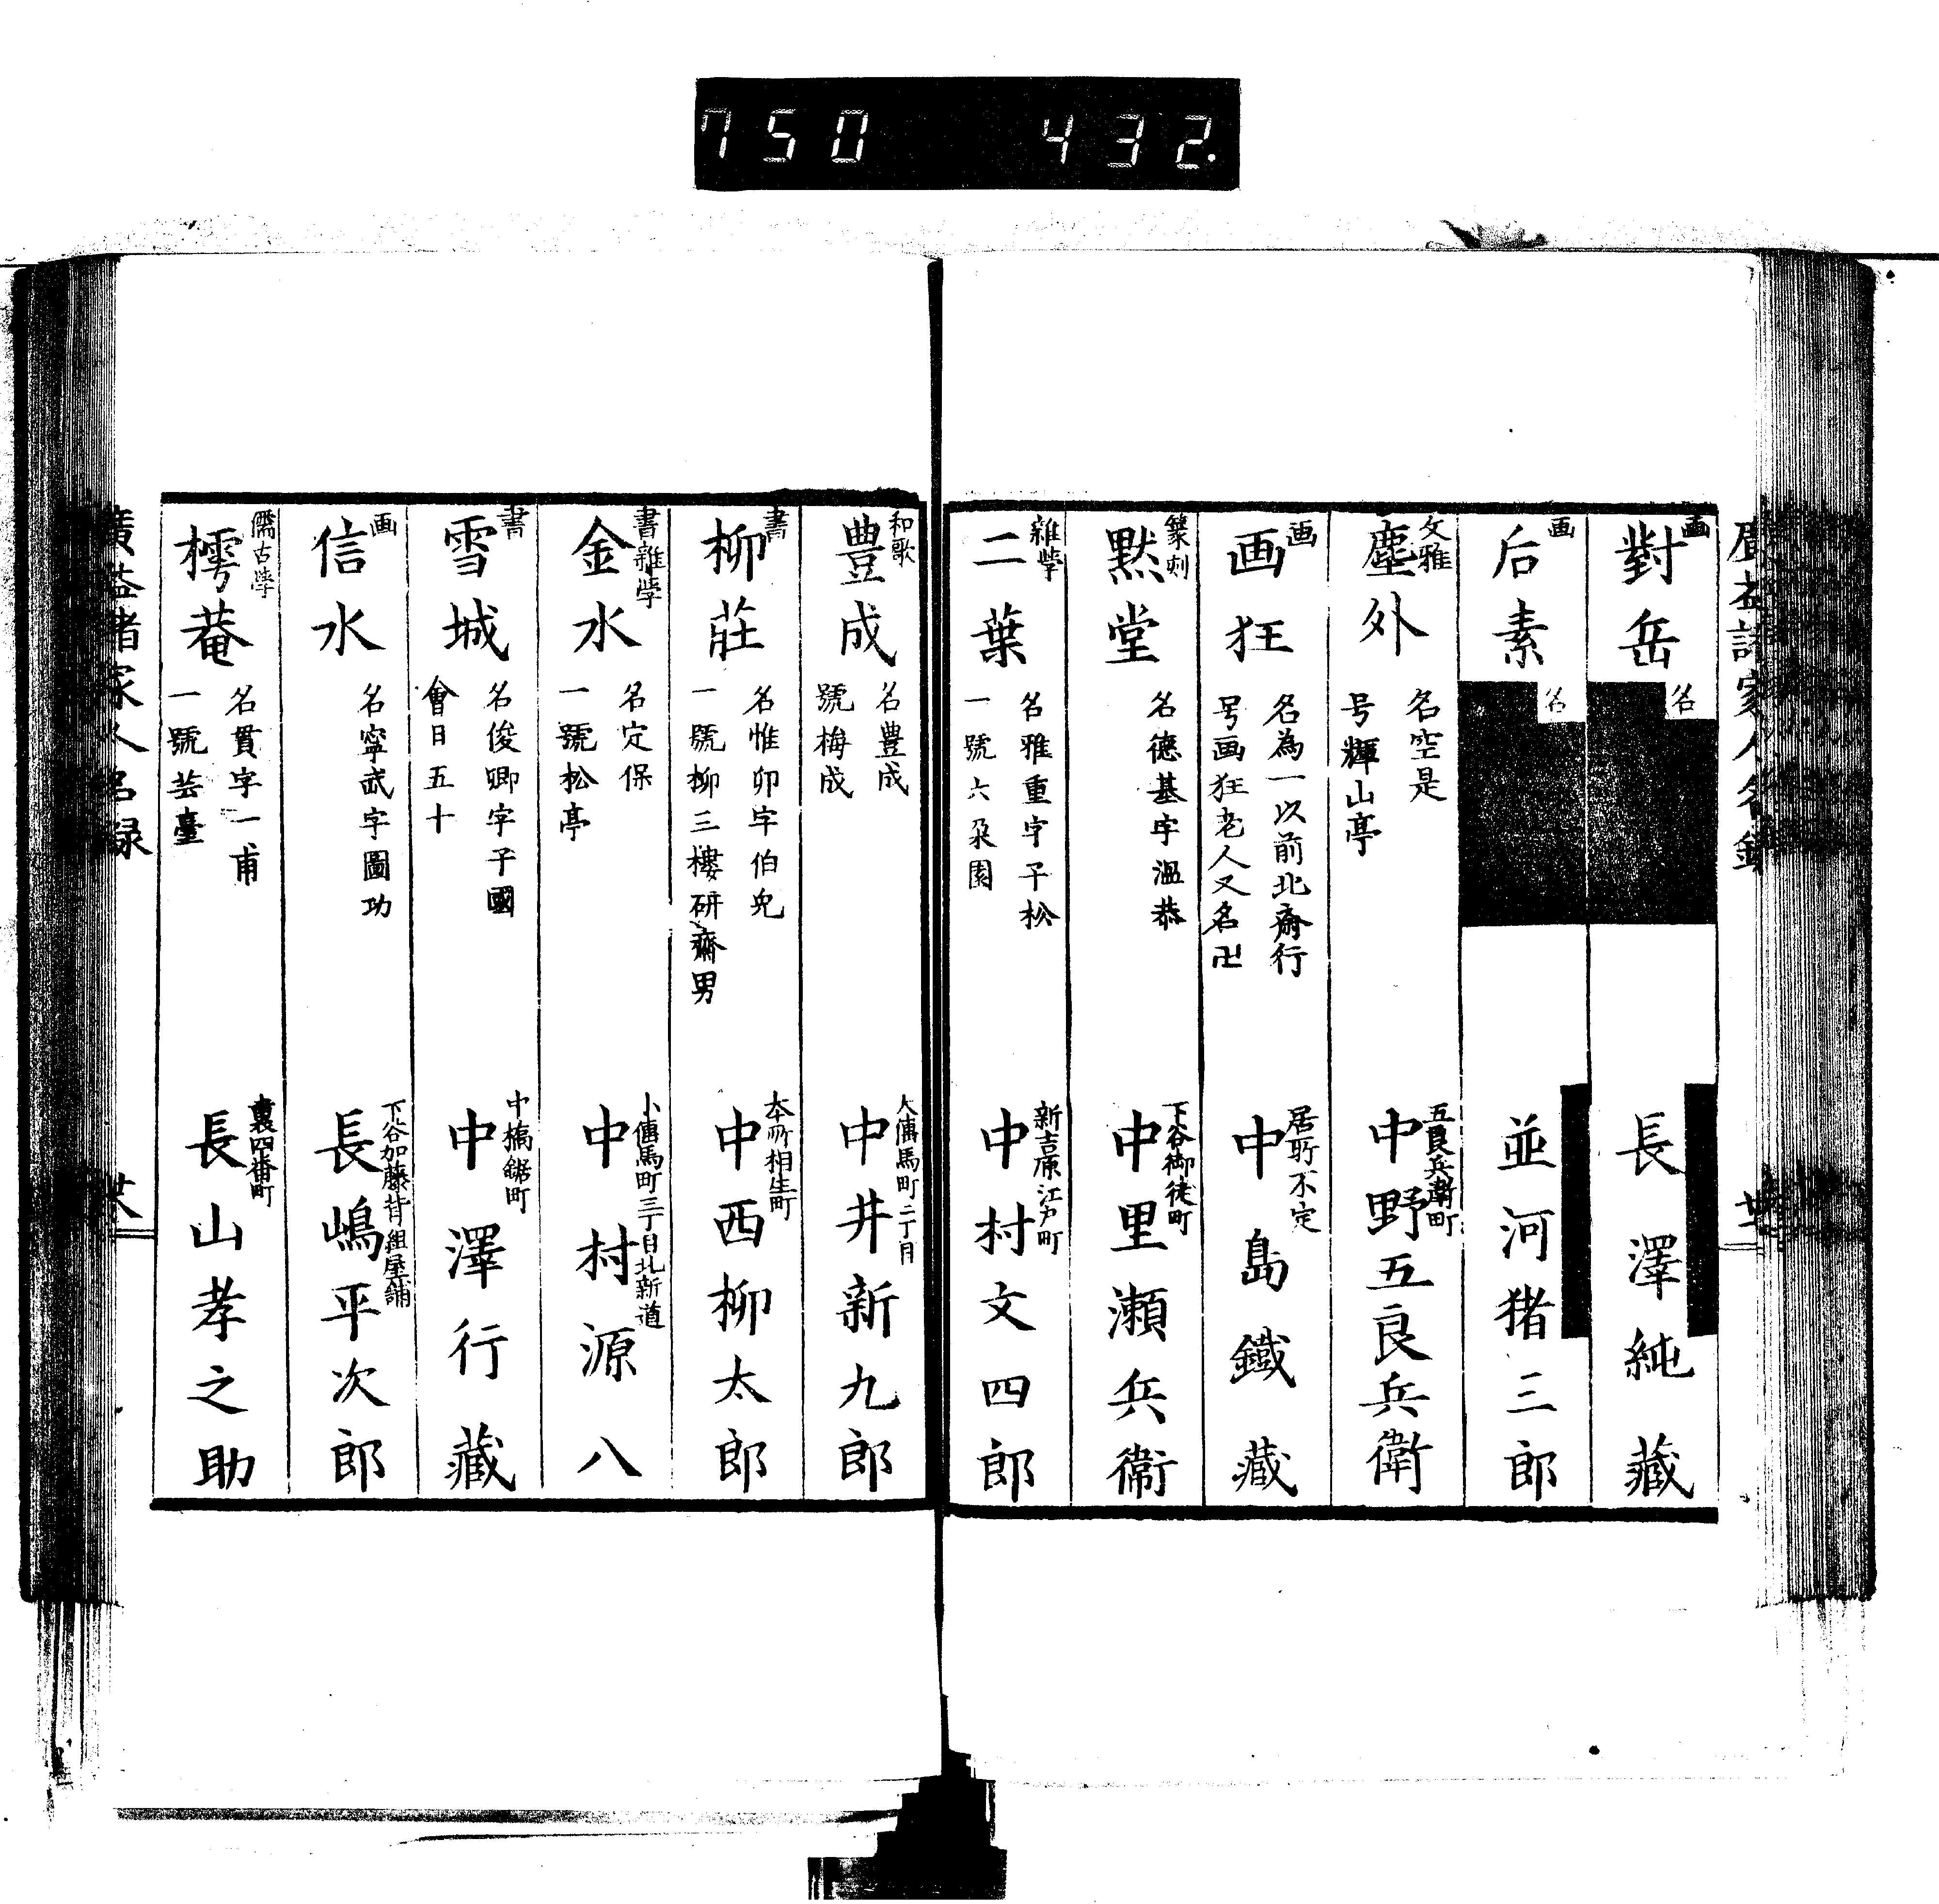 750 432.
廣益諸家人名録
画
對岳
名
長澤純藏
画
后素
名
並河猪三郎
文雅
塵外
名空是
号輝山亭
五良兵衛町
中野五良兵衛
画
画狂
名為一以前北齋行
号画狂老人又名卍
居所不定
中島鐵藏
篆刻
黙堂
名德基字溫恭
下谷御徒町
中里瀬兵衞
雜学
二葉
名雅重字子松
一號六朶園
新吉原江戸町
中村文四郎
和歌
豊成
名豊成
號梅成
大傳馬町二丁目
中井新九郎
書
柳莊
名惟卯字伯兔
一號柳三樓研齋男
本所相生町
中西柳太郎
書雜学
金水
名定保
一號松亭
小傳馬町三丁目北新道
中村源八
書
雪城
名俊卿字子國
會日五十
中橋鋸町
中澤行藏
画
信水
名寧武字圖功
下谷加藤背組屋舗
長嶋平次郎
儒古学
樗菴
名貫字一甫
一號芸臺
裏四番町
長山孝之助
廣益諸家人名録